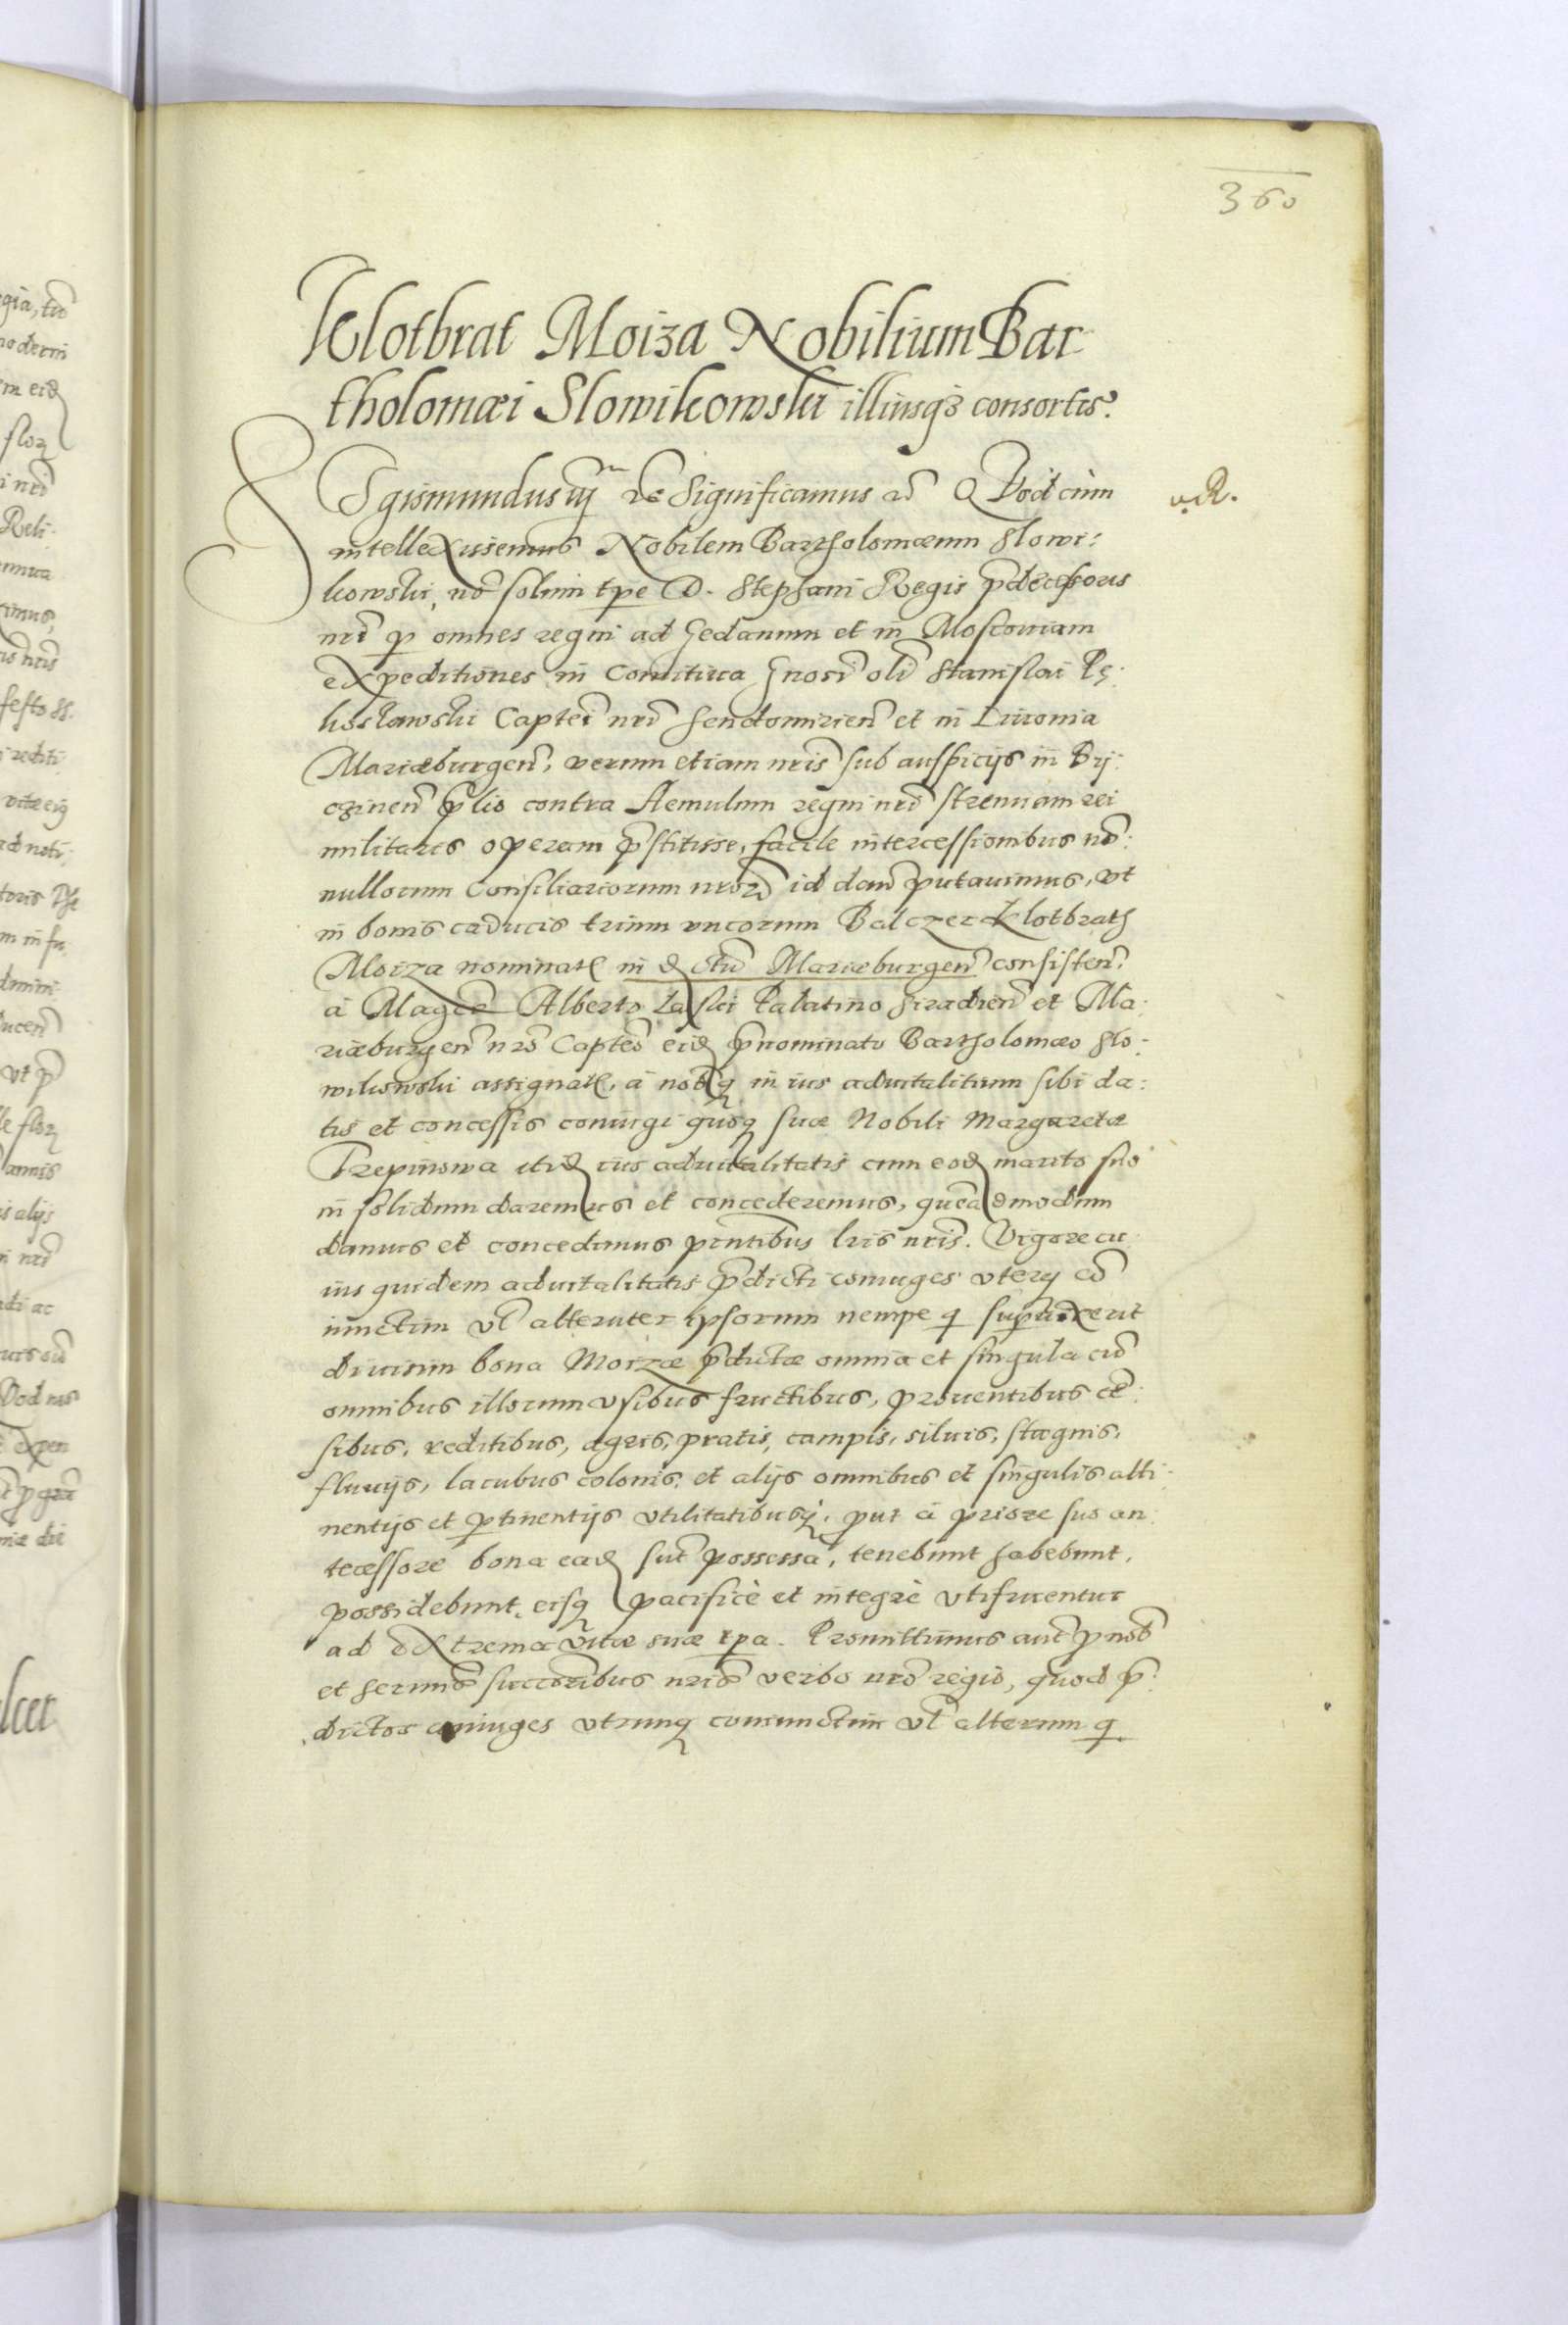 360
Klotbrat Moiza Nobilium Bar
tholomæi Slowikowski illiusqз consortis.
Sigismundus iijˢ rē Significamus rō QVod cum
intellexissemus Nobilem Bartholomæum Slowi:
kowski, nō solum tpē D. Stephani Regis p̄decessoris
nrī p omnes regni ad Gedanum et in Moscouiam
expeditiones in Comitiua Gnosi olī Stanislai Pę:
koslawski Captei nrī Sendomirien̄ et in Liuonia
Mariæburgen̄, verum etiam nrīs sub auspicijs in Bij:
czinen̄ p̄lio contra Aemulum regni nrī strenuam rei
militaris operam p̄stitisse, facile intercessionibus nō:
nullorum Consiliariorum nrōr̄ id dan̄ putauimus, vt
in bonis caducis trium vncorum Balczer Klotbrath
Moiza nominatꝭ in dctū Mariæburgen̄ consisten̄,
à Magco Alberto Laski Palatino Siradien̄ et Ma:
riæburgen̄ nrō Capteō eidꝭ p̄nominato Bartholomæo Slo:
wikowski assignatꝭ, à nobꝭqꝫ in ius aduitalitium sibi da:
tis et concessis coniugi quōqꝫ suæ Nobili Margaretæ
Trepinowa itidꝭ ius aduitalitatis cum eodꝭ marito suo
in solidum daremus et concederemus, queadmodum
damus et concedimus pn̄tibus lrīs nrīs. Vigore cu
ius quidem aduitalitatis p̄dicti coniuges vterqꝫ cō
iunctim vl̄ alteruter ipsorum nempe q supuixerit
diuisim bona Moizæ p̄dictæ omnia et singula cū
omnibus illorum vsibus fructibus, prouentibus cē:
sibus, reditibus, agris, pratis, campis, siluis, stagnis,
fluuijs, lacubus colonis, et alijs omnibus et singulis atti:
nentijs et ptinentijs vtilitatibusqꝫ, put à priore suo an:
tecessore bona eadꝭ sut possessa, tenebunt habebunt,
possidebunt, eisqꝫ pacificè et integrè vtifruentur
ad extrema vitæ suæ tpa. Promittimus aut̄ p nobꝭ
et sermis succoribus nrīs verbo nrō regio, quod p̄:
dictos coniuges vtrunqꝫ coniunctim vl̄ alterum q